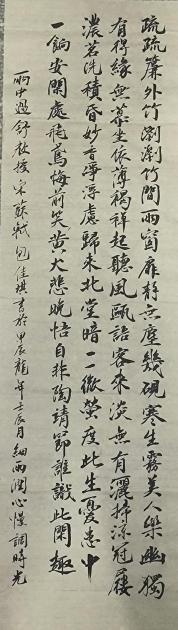 疏疏簾外竹瀏瀏竹間雨窗扉靜無塵幾硯寒生霧美人樂幽獨
有得緣無慕坐依薄褐禪起聽風甌語客來淡無有灑掃涼冠屨
濃茗洗積昏妙香淨浮慮歸來北堂暗一一微螢度此生憂患中
一餉安閑處飛鳶悔前笑黃犬悲晚悟自非陶靖節誰識此閑趣
雨中過舒教授宋蘇軾包佳琪書於甲辰龍年壬辰月細雨潤心慢調時光